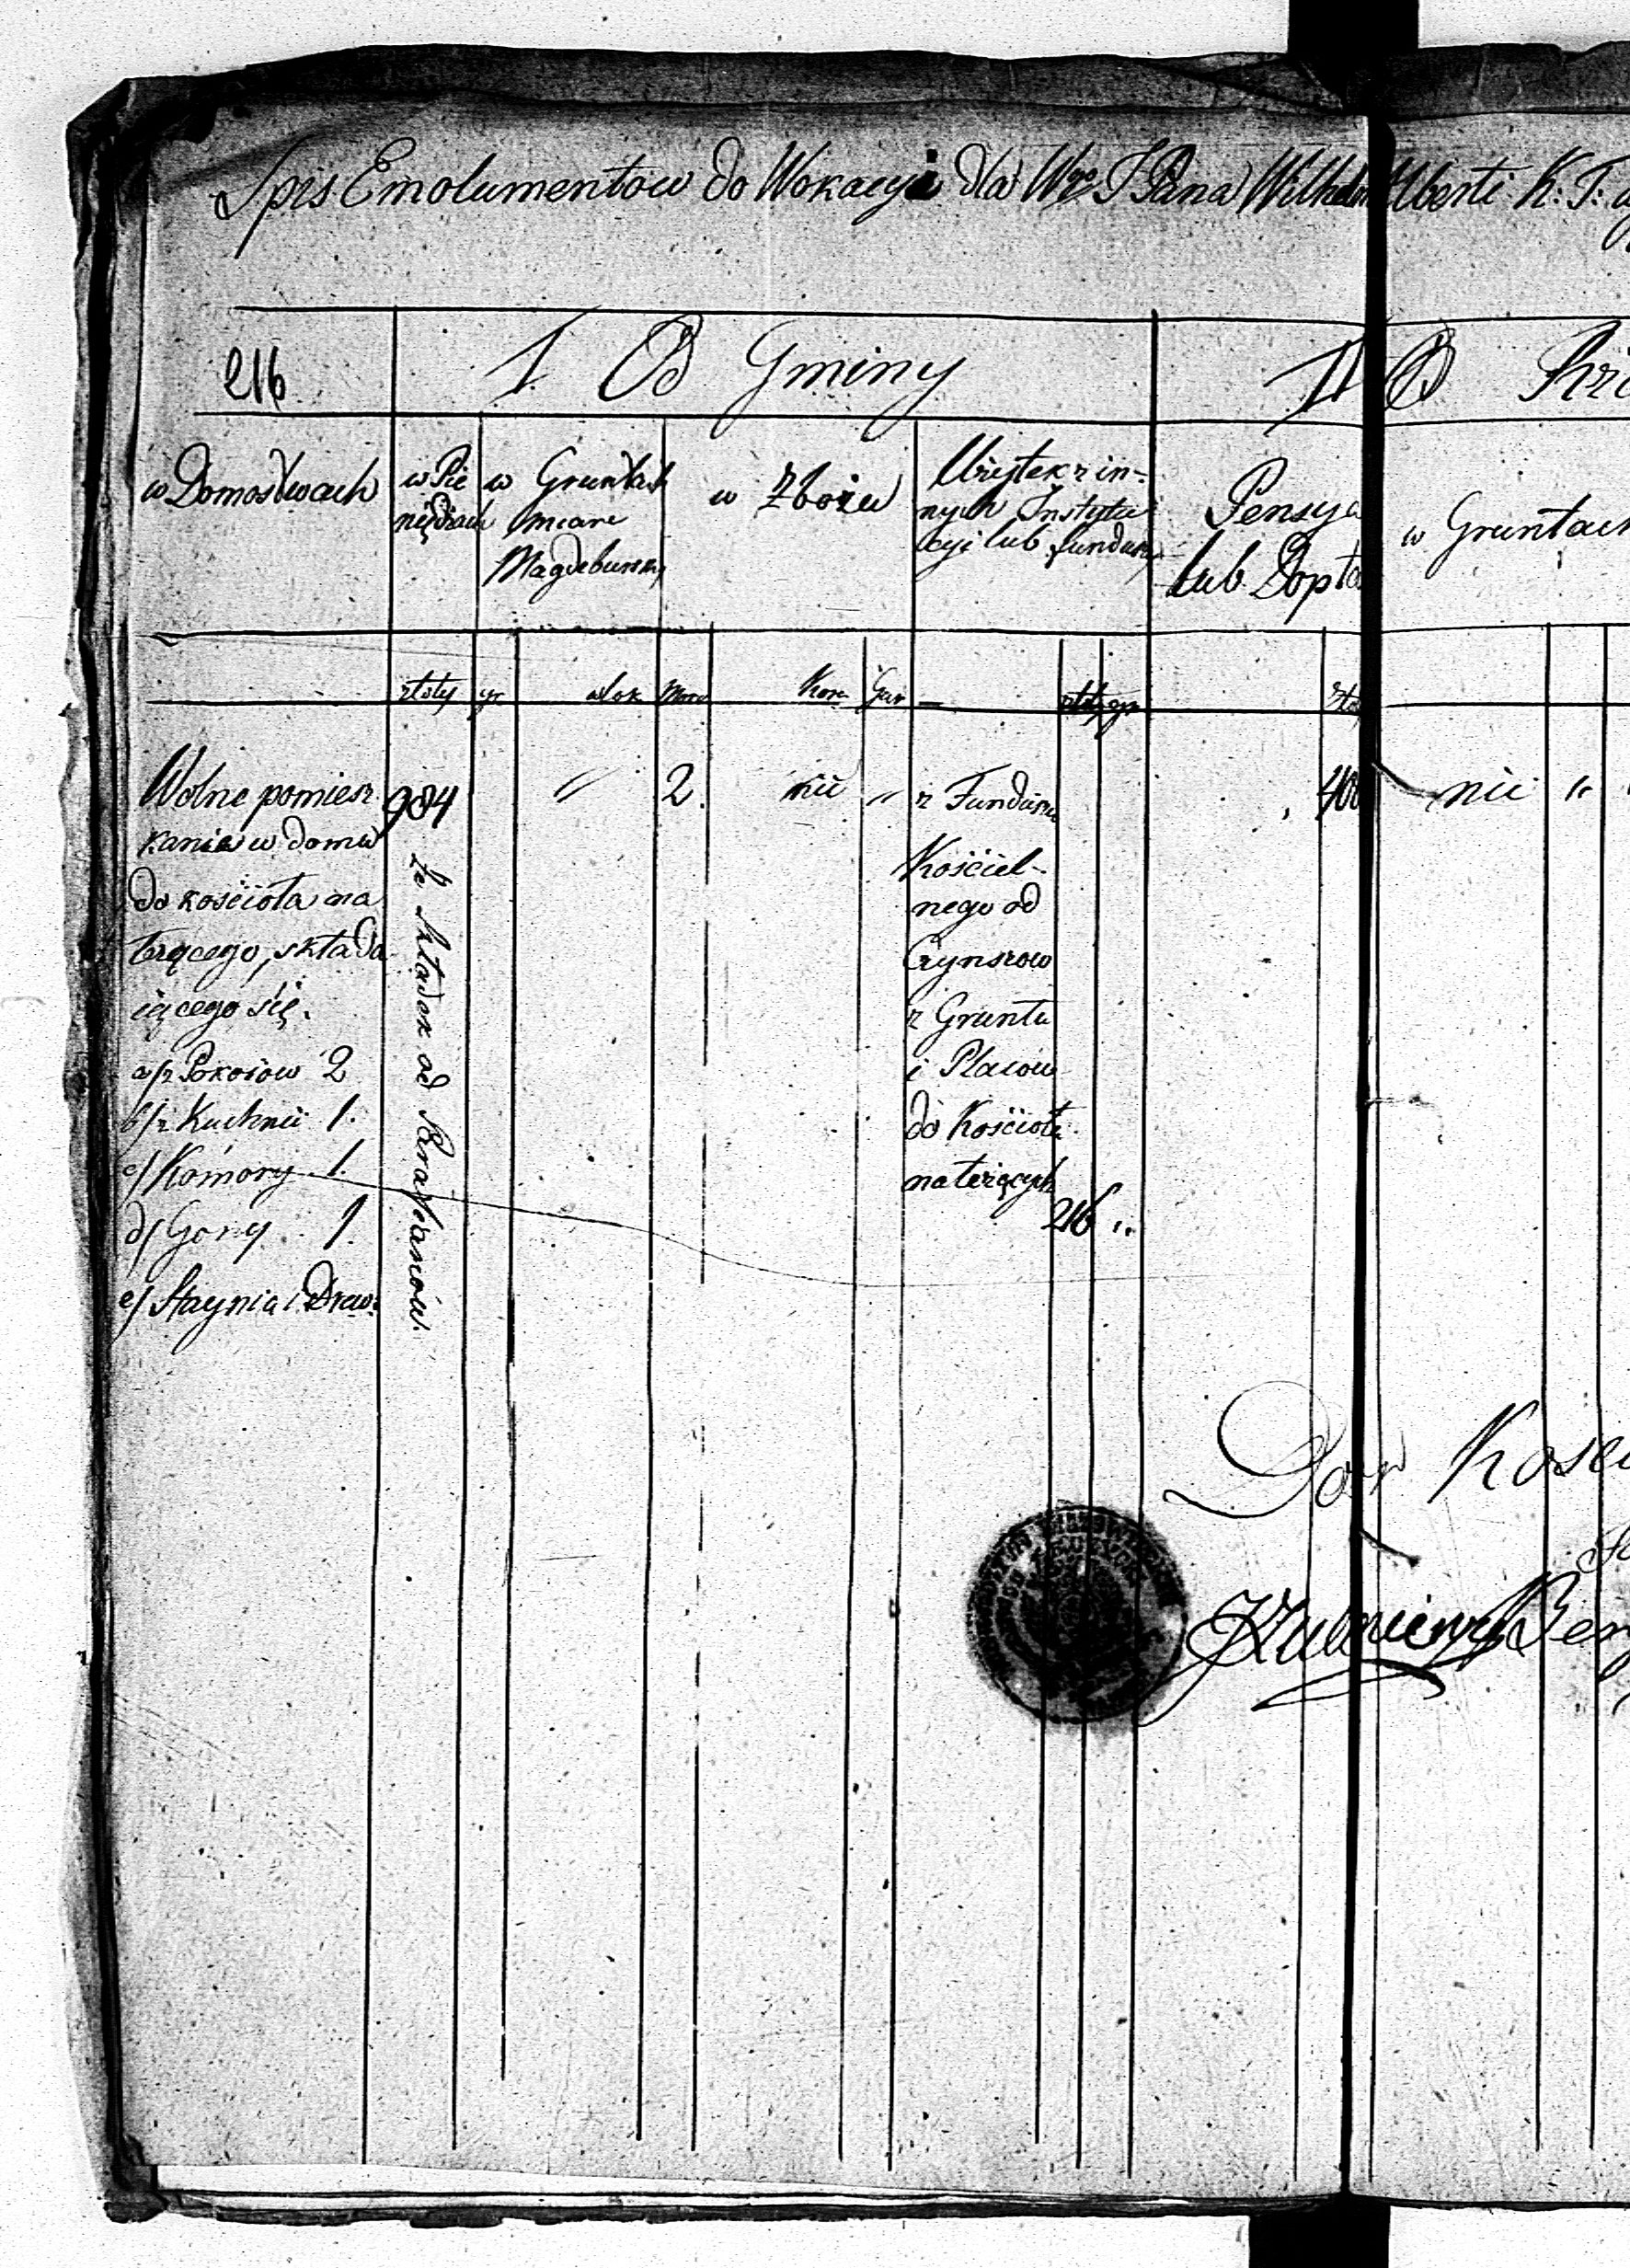 Spis Emolumentow do Wokacyi dla Wgo J Pana Wilhelm Alberti K: T:
216
I Od Gminy
II Od
w Domostwach
w Pie
niędzach
w Gruntach
miary
Magdeburski
w Zbożu
Użytek z in-
nych Instytu
cyi lub fundusz
Pensya
lub Dopła
w Gruntach
złoty gr. włok Morg Korc Gar złoty gr
Wolne pomiesz
kanie w domu
do kościoła na
leżącego, składa
iącego się.
a/ z Pokoiow 2
b/ z Kuchnii 1.
c/ Komory 1.
d/ Gory 1.
e/ Staynia i Drew:
984
Ze składek od Parafianów.
" 2.
nic "
z Fundusu
Kościel-
nego od
Czynszow
z Gruntu
i Placow
do Kościoła
należących
216 "
400
nic "
Dozor Kości